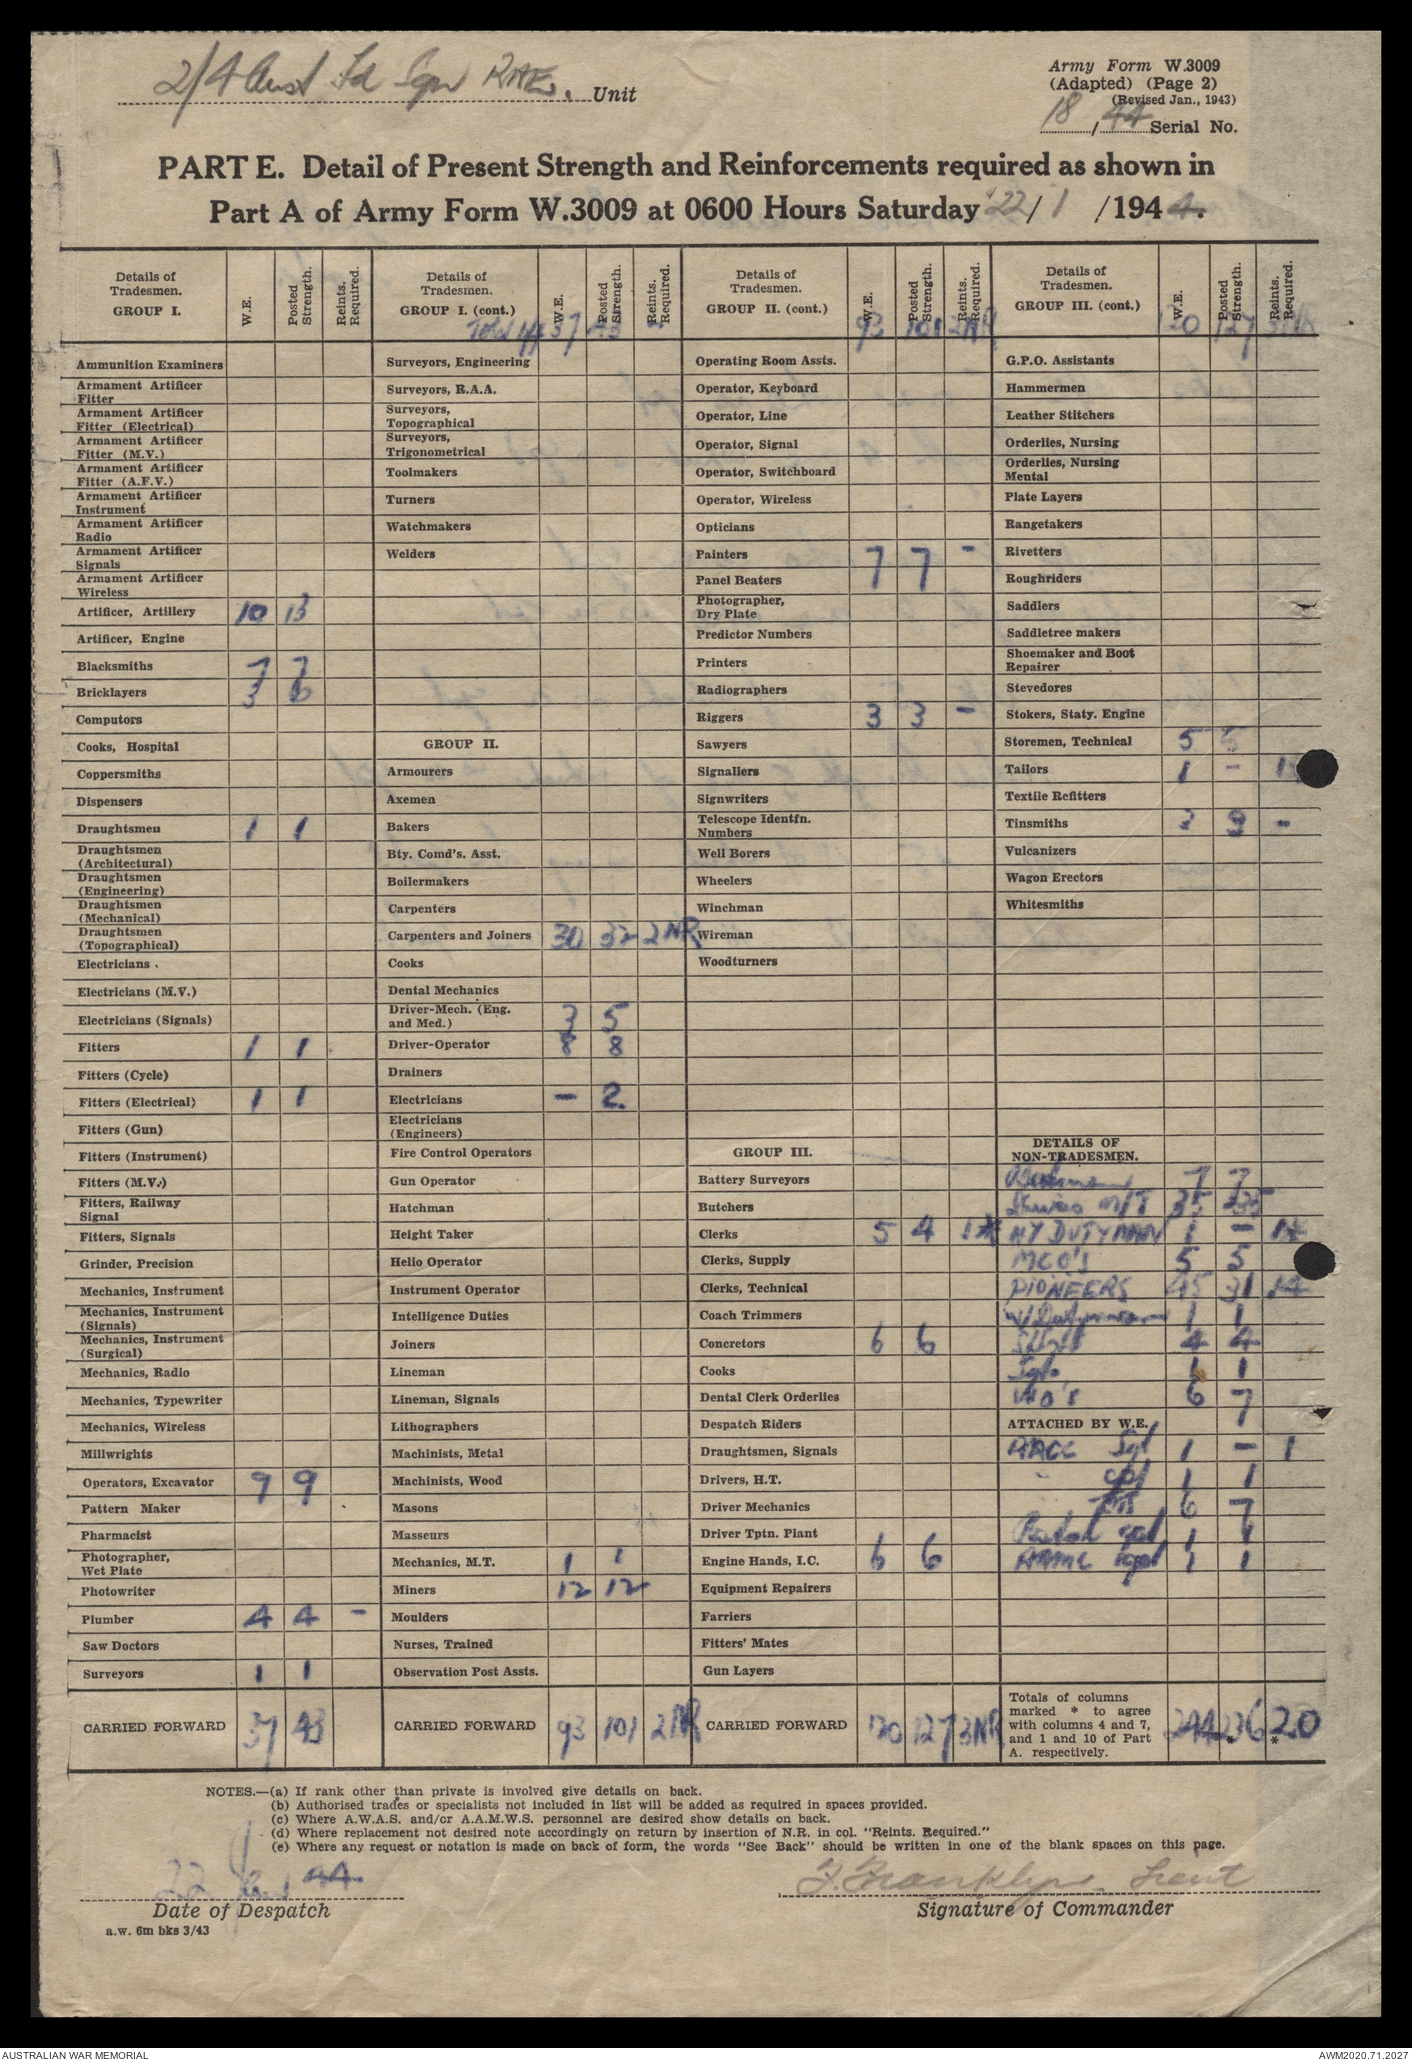 2/4 Aust Fd Sqn RAE. Unit
Army Form W.3009
(Adapted) (Page 2)
(Revised Jan., 1943)
18/44 Serial No.
PART E. Detail of Present Strength and Reinforcements required as shown in
Part A of Army Form W.3009 at 0600 Hours Saturday 22/1/1944.
Details of Tradesmen. GROUP I. W.E. Posted Strength. Reints. Required.
Ammunition Examiners
Armament Artificer Fitter
Armament Artificer Fitter (Electrical)
Armament Artificer Fitter (M.V.)
Armament Artificer Fitter (A.F.V.)
Armament Artificer Instrument
Armament Artificer Radio
Armament Artificer Signals
Armament Artificer Wireless
Artificer, Artillery 10 13
Artificer, Engine
Blacksmiths 7 7
Bricklayers 3 6
Computors
Cooks, Hospital
Coppersmiths
Dispensers
Draughtsmen 1 1
Draughtsmen (Architectural)
Draughtsmen (Engineering)
Draughtsmen (Mechanical)
Draughtsmen (Topographical)
Electricians
Electricians (M.V.)
Electricians (Signals)
Fitters 1 1
Fitters (Cycle)
Fitters (Electrical) 1 1
Fitters (Gun)
Fitters (Instrument)
Fitters (M.V.)
Fitters, Railway Signal
Fitters, Signals
Grinder, Precision
Mechanics, Instrument
Mechanics, Instrument (Signals)
Mechanics, Instrument (Surgical)
Mechanics, Radio
Mechanics, Typewriter
Mechanics, Wireless
Millwrights
Operators, Excavator 9 9
Pattern Maker
Pharmacist
Photographer, Wet Plate
Photowriter
Plumber 4 4 -
Saw Doctors
Surveyors 1 1
CARRIED FORWARD 37 43
Details of Tradesmen. GROUP I. (cont.) W.E. Posted Strength. Reints. Required.
37 43 -
Surveyors, Engineering
Surveyors, R.A.A.
Surveyors, Topographical
Surveyors, Trigonometrical
Toolmakers
Turners
Watchmakers
Welders
GROUP II.
Armourers
Axemen
Bakers
Bty. Comd's. Asst.
Boilermakers
Carpenters
Carpenters and Joiners 30 32 2NR
Cooks
Dental Mechanics
Driver-Mech. (Eng. and Med.) 3 5
Driver-Operator 8 8
Drainers
Electricians - 2
Electricians (Engineers)
Fire Control Operators
Gun Operator
Hatchman
Height Taker
Helio Operator
Instrument Operator
Intelligence Duties
Joiners
Lineman
Lineman, Signals
Lithographers
Machinists, Metal
Machinists, Wood
Masons
Masseurs
Mechanics, M.T. 1 1
Miners 12 12
Moulders
Nurses, Trained
Observation Post Assts.
CARRIED FORWARD 93 101 2NR
Details of Tradesmen. GROUP II. (cont.) W.E. Posted Strength. Reints. Required.
93 101 2NR
Operating Room Assts.
Operator, Keyboard
Operator, Line
Operator, Signal
Operator, Switchboard
Operator, Wireless
Opticians
Painters 7 7 -
Panel Beaters
Photographer, Dry Plate
Predictor Numbers
Printers
Radiographers
Riggers 3 3 -
Sawyers
Signallers
Signwriters
Telescope Identfn. Numbers
Well Borers
Wheelers
Winchman
Wireman
Woodturners
GROUP III.
Battery Surveyors
Butchers
Clerks 5 4
Clerks, Supply
Clerks, Technical
Coach Trimmers
Concretors 6 6
Cooks
Dental Clerk Orderlies
Despatch Riders
Draughtsmen, Signals
Drivers, H.T.
Driver Mechanics
Driver Tptn. Plant
Engine Hands, I.C. 6 6
Equipment Repairers
Farriers
Fitters' Mates
Gun Layers
CARRIED FORWARD 120 127 3NR
Details of Tradesmen. GROUP III. (cont.) W.E. Posted Strength. Reints. Required.
120 127 3NR
G.P.O. Assistants
Hammermen
Leather Stitchers
Orderlies, Nursing
Orderlies, Nursing Mental
Plate Layers
Rangetakers
Rivetters
Roughriders
Saddlers
Saddletree makers
Shoemaker and Boot Repairer
Stevedores
Stokers, Staty. Engine
Storemen, Technical 5 5
Tailors 1 - 1
Textile Refitters
Tinsmiths 3 3 -
Vulcanizers
Wagon Erectors
Whitesmiths
DETAILS OF NON-TRADESMEN.
Batmen 7 7
Drivers M/T 35 35
HY DUTYMAN 1 -
MCO'S 5 5
PIONEERS 45 31 14
1 1
S/Sgt 4 4
Sgts 1 1
WO's 6 7
ATTACHED BY W.E.
AACC Sgt 1 - 1
" Cpl 1 1
6 7
1 1
AAMC 1 1
Totals of columns marked * to agree with columns 4 and 7, and 1 and 10 of Part A. respectively. 244 236* 20*
NOTES.—(a) If rank other than private is involved give details on back.
(b) Authorised trades or specialists not included in list will be added as required in spaces provided.
(c) Where A.W.A.S. and/or A.A.M.W.S. personnel are desired show details on back.
(d) Where replacement not desired note accordingly on return by insertion of N.R. in col. "Reints. Required."
(e) Where any request or notation is made on back of form, the words "See Back" should be written in one of the blank spaces on this page.
22 Jan 44
Date of Despatch
F Franklyn Lieut
Signature of Commander
a.w. 6m bks 3/43
AUSTRALIAN WAR MEMORIAL
AWM2020.71.2027